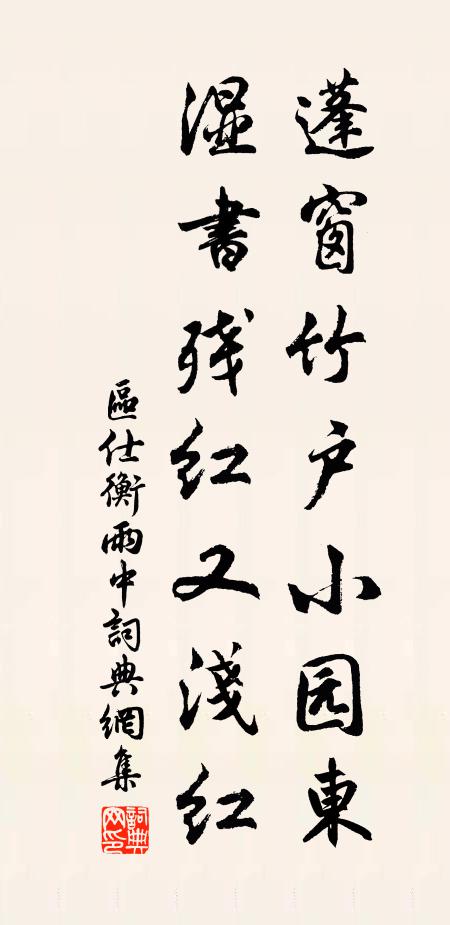 蓬窗竹户小园東
濕書残红又淺红
區仕衡雨中詞典網集
詞典網印